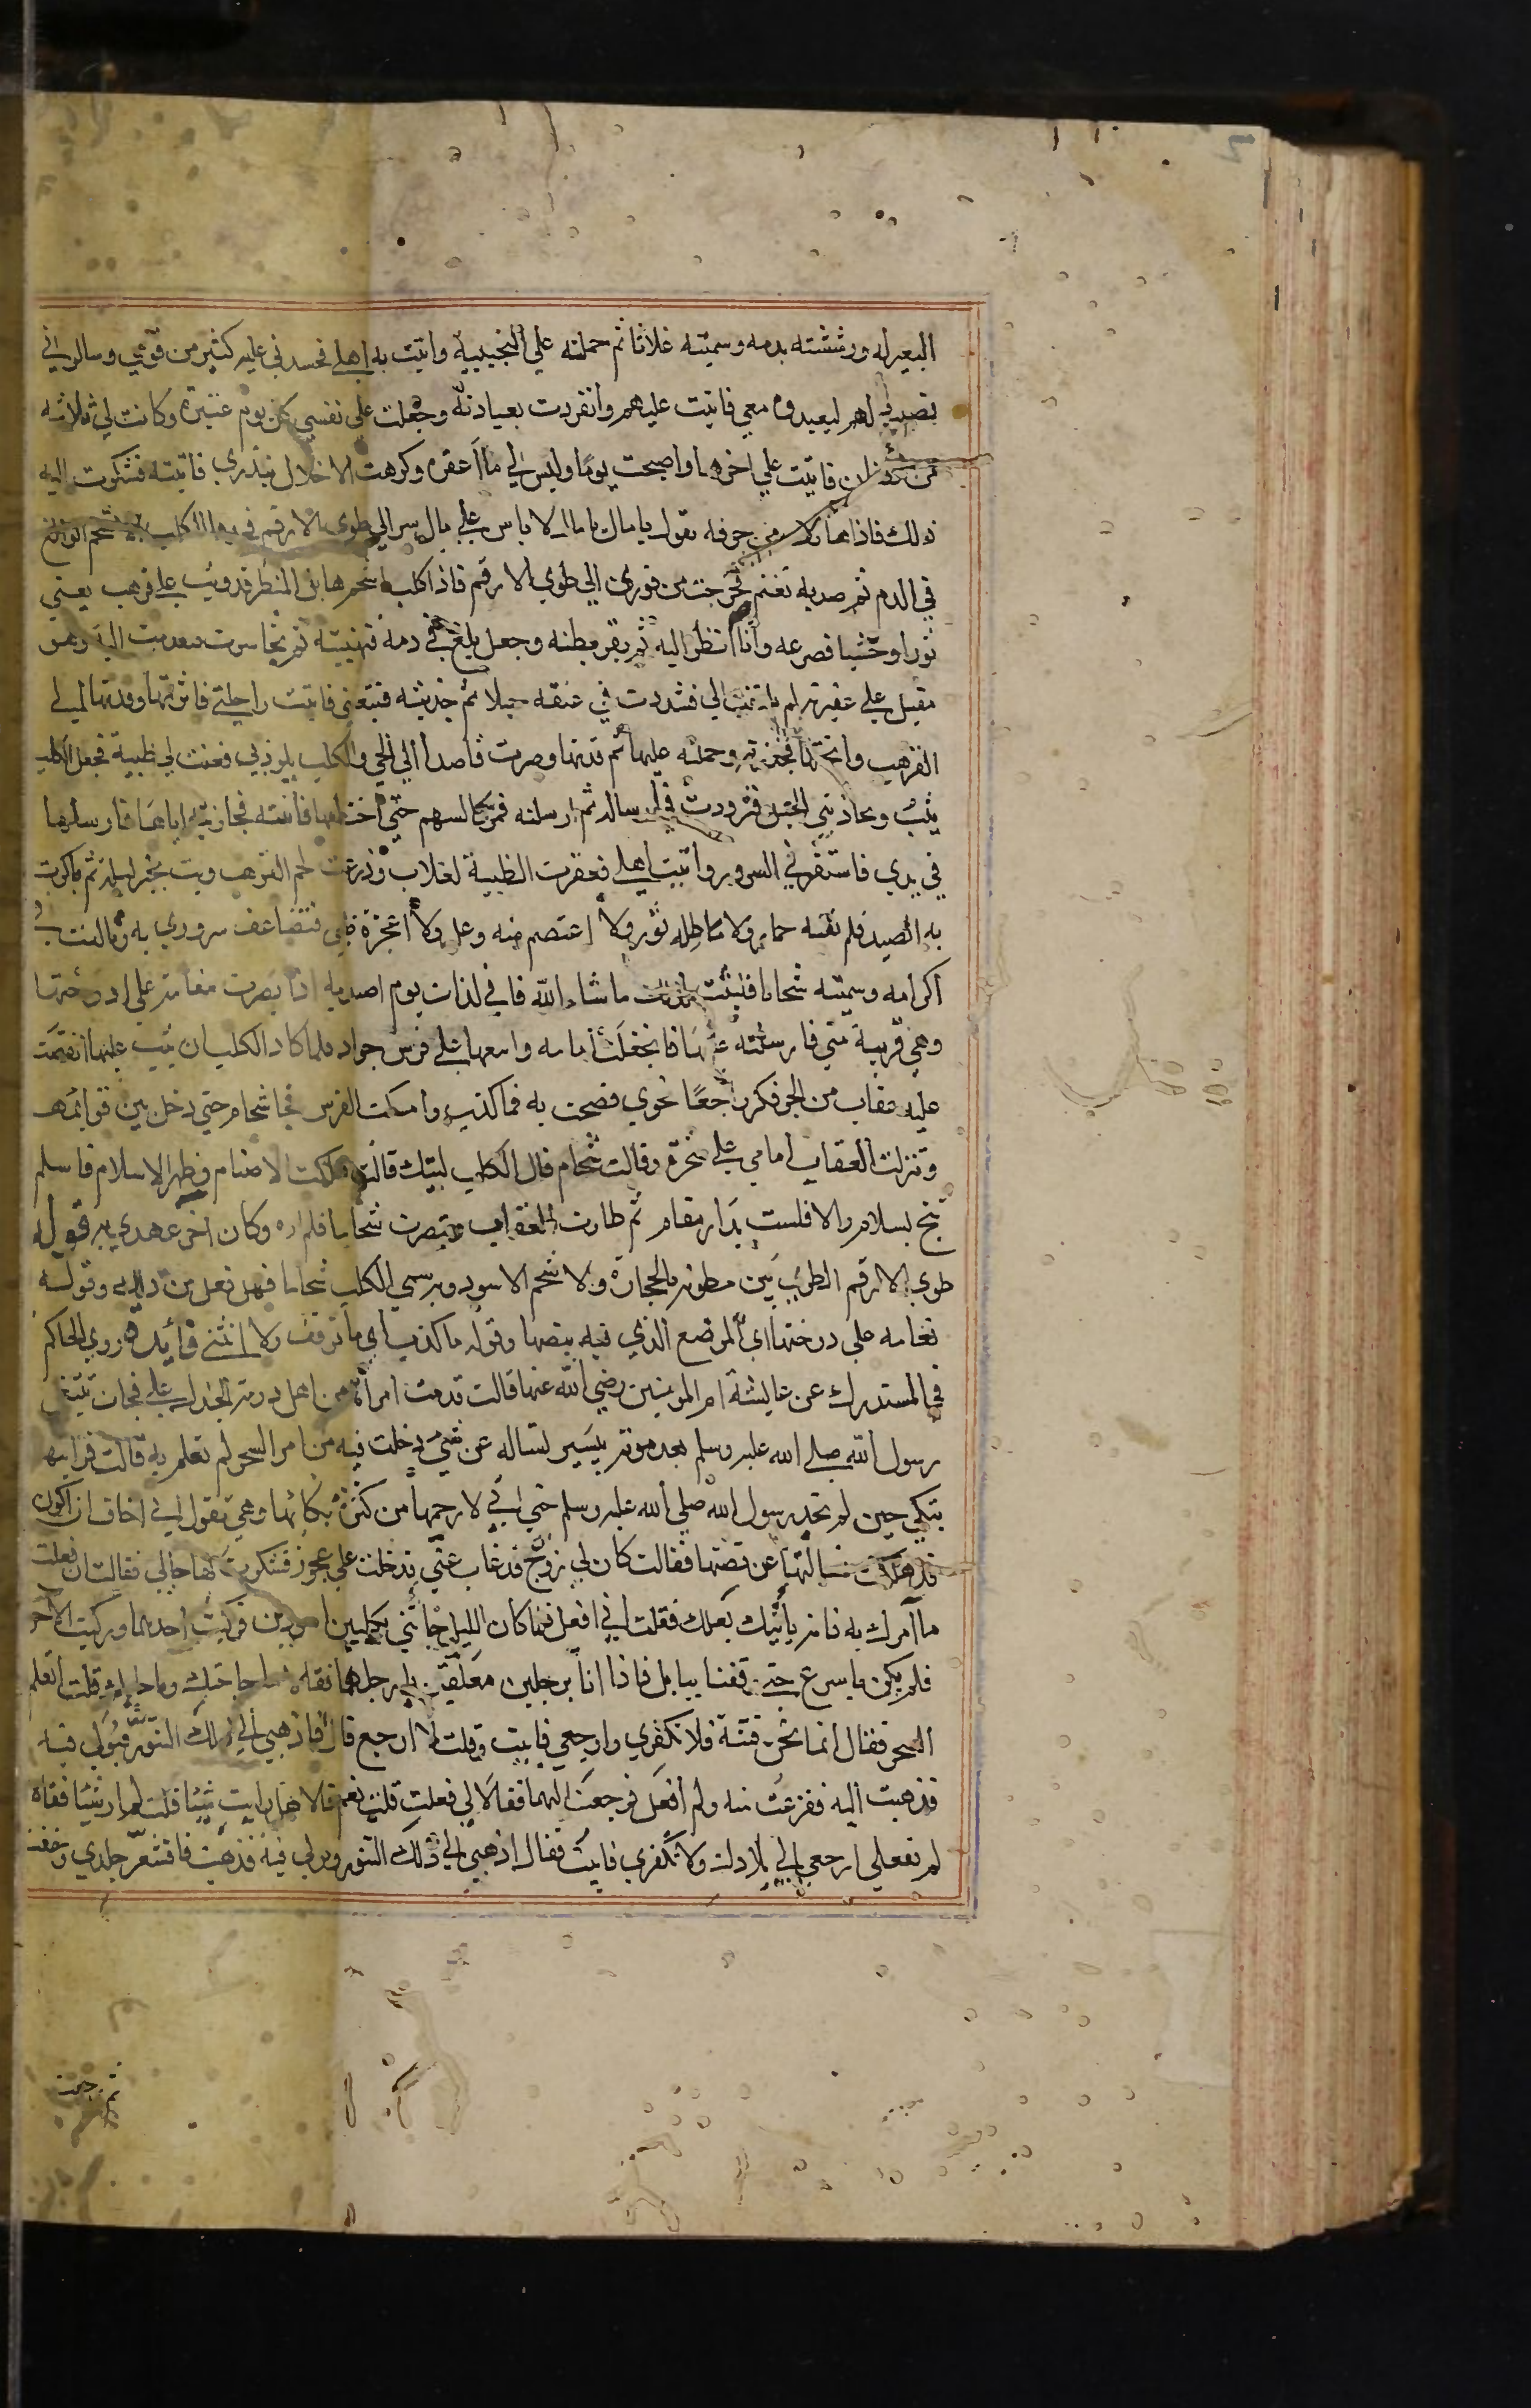 البعير له ورششته بدمه وسميته غلاثا ثم حملته علي النجيبة واتيت به اهلي فحسدني عليه كثير من قومي وسالوني
نصبه لهم ليعبدوه معي فابيت عليهم وانفردت بعبادته وجعلت علي نفسي كل يوم عتيرة وكانت لي ثلاثه
من الضان فاتيت علي اخرها واصبحت يوما وليس لي ما اعتره وكرهت الاخلال بنذري فاتيته فشكوت اليه
ذلك فاذا هاتف من جوفه يقول يا مال يا مال لا باس علي مال سر الي طوي الارقم فخذ الكلب الاسحم الوالغ
في الدم ثم صد به تغنم فخرجت من فوري الي طوي الارقم فاذا كلب اسحم هايل المنظر قد وثب علي قرهب يعني
ثورا وحشيا فصرعه وانا انظر اليه ثم بقر بطنه وجعل يلغ في دمه فتهيبته ثم تجاسرت فعدبت اليه وهو
مقبل علي عقيرته لم يلتفت الي فشددت في عنقه حبلا ثم جذبته فتبعني فاتيت راحلتي فاثرتها وقدتها الي
القرهب وانختها فجزرته وحملته عليها ثم قدتها وصرت قاصدا الي الحي والكلب يلوذ بي فعنت لي ظبية فجعل الكلب
يثب ويجاذبني الحبل فترددت في ارساله ثم ارسلته فمر كالسهم حتي اختطفها فاتيته فجاذبته اياها فارسلها
في يدي فاستفزني السرور واتيت اهلي فعقرت الظبية لغلاب وزرعت لحم القرهب وبت بخير ليلة ثم باكرت
به الصيد فلم يفته حمار ولا ماطله ثور ولا اعتصم منه وعل ولا اعجزه ظبي فتضاعف سروري به وبالغت في
اكرامه وسميته سحاما فلبثت كذلك ما شاء الله فاني لذات يوم اصيد به اذا بصرت بنعامة علي ادحيتها
وهي قريبة مني فارسلته عليها فانجفلت امامه واتبعها علي فرس جواد فلما كاد الكلب ان يثب عليها انقضت
عليه عقاب من الجو فكر راجعا نحوي فصحت به فما كذب وامسكت الفرس فجا سحام حتي دخل بين قوائمه
ونزلت العقاب امامي علي صخرة وقالت سحام قال الكلب لبيك قالت هلكت الاصنام وظهر الاسلام فاسلم
تنج بسلام والا فلست بدار مقام ثم طارت العقاب وتبصرت سحاما فلم اره وكان اخر عهدي به قوله
طوي الارقم الطوي بين مطوية بالحجارة ولا سحم الاسود وبه سمي الكلب سحاما فهل تعلم من ذلك وقوله
نعامه علي درختها اي الموضع الذي فيه بيضها وقوله ما كذب اي ما توقف ولا انثني فائدة روي الحاكم
في المستدرك عن عايشة ام المومنين رضي الله عنها قالت قدمت امراة من اهل دومة الجندل علي فجات تبتغي
رسول الله صلي الله عليه وسلم بعد موته بيسير تساله عن شي دخلت فيه من امر السحر لم تعلم به قالت فرايتها
تبكي حين لم تجد رسول الله صلي الله عليه وسلم حتي اني لارحمها من كثرة بكائها وهي تقول اني اخاف ان اكون
قد هلكت فسالتها عن قصتها فقالت كان لي زوج قد غاب عني فدخلت علي عجوز فشكوت لها حالي فقالت ان فعلت
ما آمرك به فانه يأتيك بعلك فقلت اني افعل فلما كان الليل جاتني بكلبين اسودين فركبت احدهما وركبت الاخر
فلم يكن باسرع حتي وقفنا ببابل فاذا انا برجلين معلقين بارجلهما فقالا ما حاجتك وما جا بك قلت اتعلم
السحر فقال انما نحن فتنة فلا تكفري وارجعي فابيت وقلت لا ارجع قال فاذهبي الي ذلك التنور فبولي فيه
فذهبت اليه ففزعت منه ولم افعل فرجعت اليهما فقالا لي فعلت قلت نعم قالا هل رايت شيئا قلت لم ار شيئا فقالا
لم تفعلي ارجعي الي بلادك ولا تكفري فابيت فقال اذهبي الي ذلك التنور وبولي فيه فذهبت فاقشعر جلدي وخفت
ثم رجعت